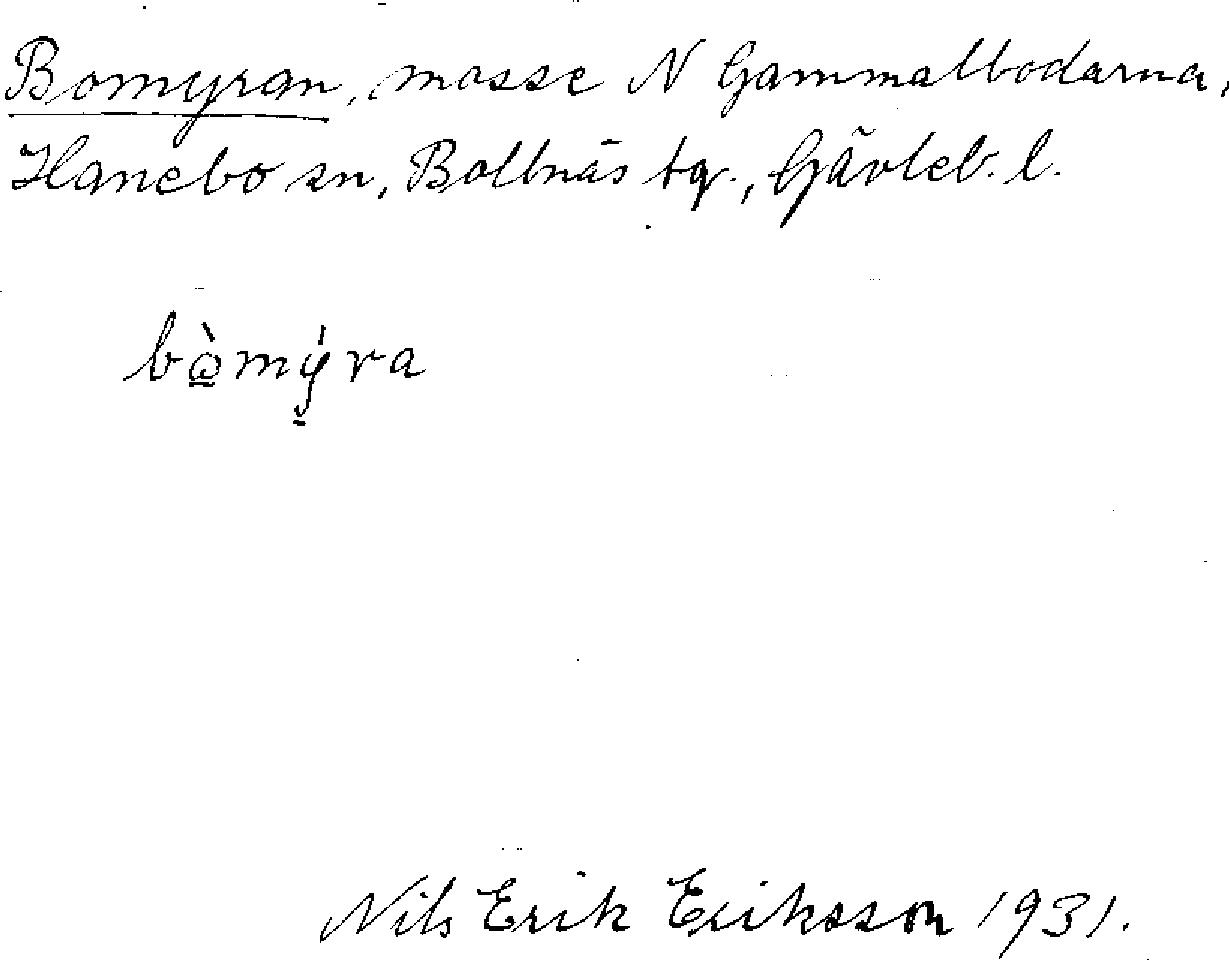 Bomyran, mosse N Gammalbodarna,
Hanebo sn, Bollnäs tg., Gävleb. l.
bò̲mý̲ra
Nils Erik Eriksson 1931.